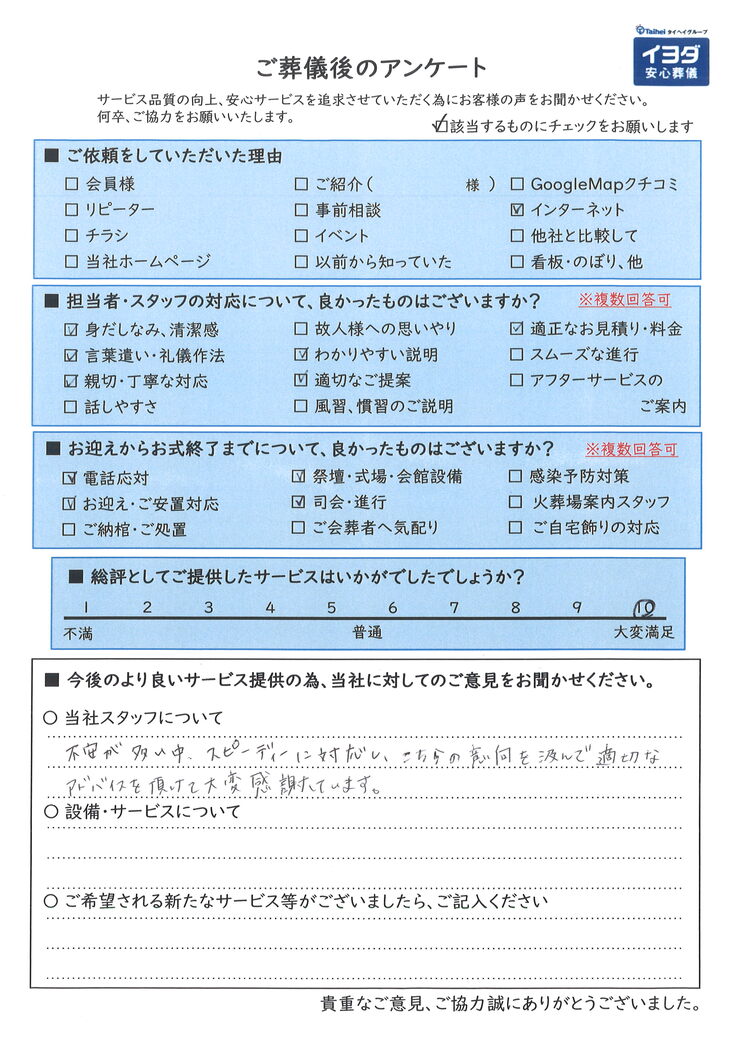 Taihei タイヘイグループ
イヨダ
安心葬儀
ご葬儀後のアンケート
サービス品質の向上、安心サービスを追求させていただく為にお客様の声をお聞かせください。
何卒、ご協力をお願いいたします。
☑該当するものにチェックをお願いします
■ ご依頼をしていただいた理由
☐ 会員様 ☐ ご紹介( 様 ) ☐ GoogleMapクチコミ
☐ リピーター ☐ 事前相談 ☑ インターネット
☐ チラシ ☐ イベント ☐ 他社と比較して
☐ 当社ホームページ ☐ 以前から知っていた ☐ 看板・のぼり、他
■ 担当者・スタッフの対応について、良かったものはございますか? ※複数回答可
☑ 身だしなみ、清潔感 ☐ 故人様への思いやり ☑ 適正なお見積り・料金
☑ 言葉遣い・礼儀作法 ☑ わかりやすい説明 ☐ スムーズな進行
☑ 親切・丁寧な対応 ☑ 適切なご提案 ☐ アフターサービスの
☐ 話しやすさ ☐ 風習、慣習のご説明 ご案内
■ お迎えからお式終了までについて、良かったものはございますか? ※複数回答可
☑ 電話応対 ☑ 祭壇・式場・会館設備 ☐ 感染予防対策
☑ お迎え・ご安置対応 ☑ 司会・進行 ☐ 火葬場案内スタッフ
☐ ご納棺・ご処置 ☐ ご会葬者へ気配り ☐ ご自宅飾りの対応
■ 総評としてご提供したサービスはいかがでしたでしょうか?
1 2 3 4 5 6 7 8 9 10
不満 普通 大変満足
■ 今後のより良いサービス提供の為、当社に対してのご意見をお聞かせください。
○ 当社スタッフについて
不安が多い中、スピーディーに対応し、こちらの意向を汲んで適切な
アドバイスを頂けて大変感謝しています。
○ 設備・サービスについて
○ ご希望される新たなサービス等がございましたら、ご記入ください
貴重なご意見、ご協力誠にありがとうございました。